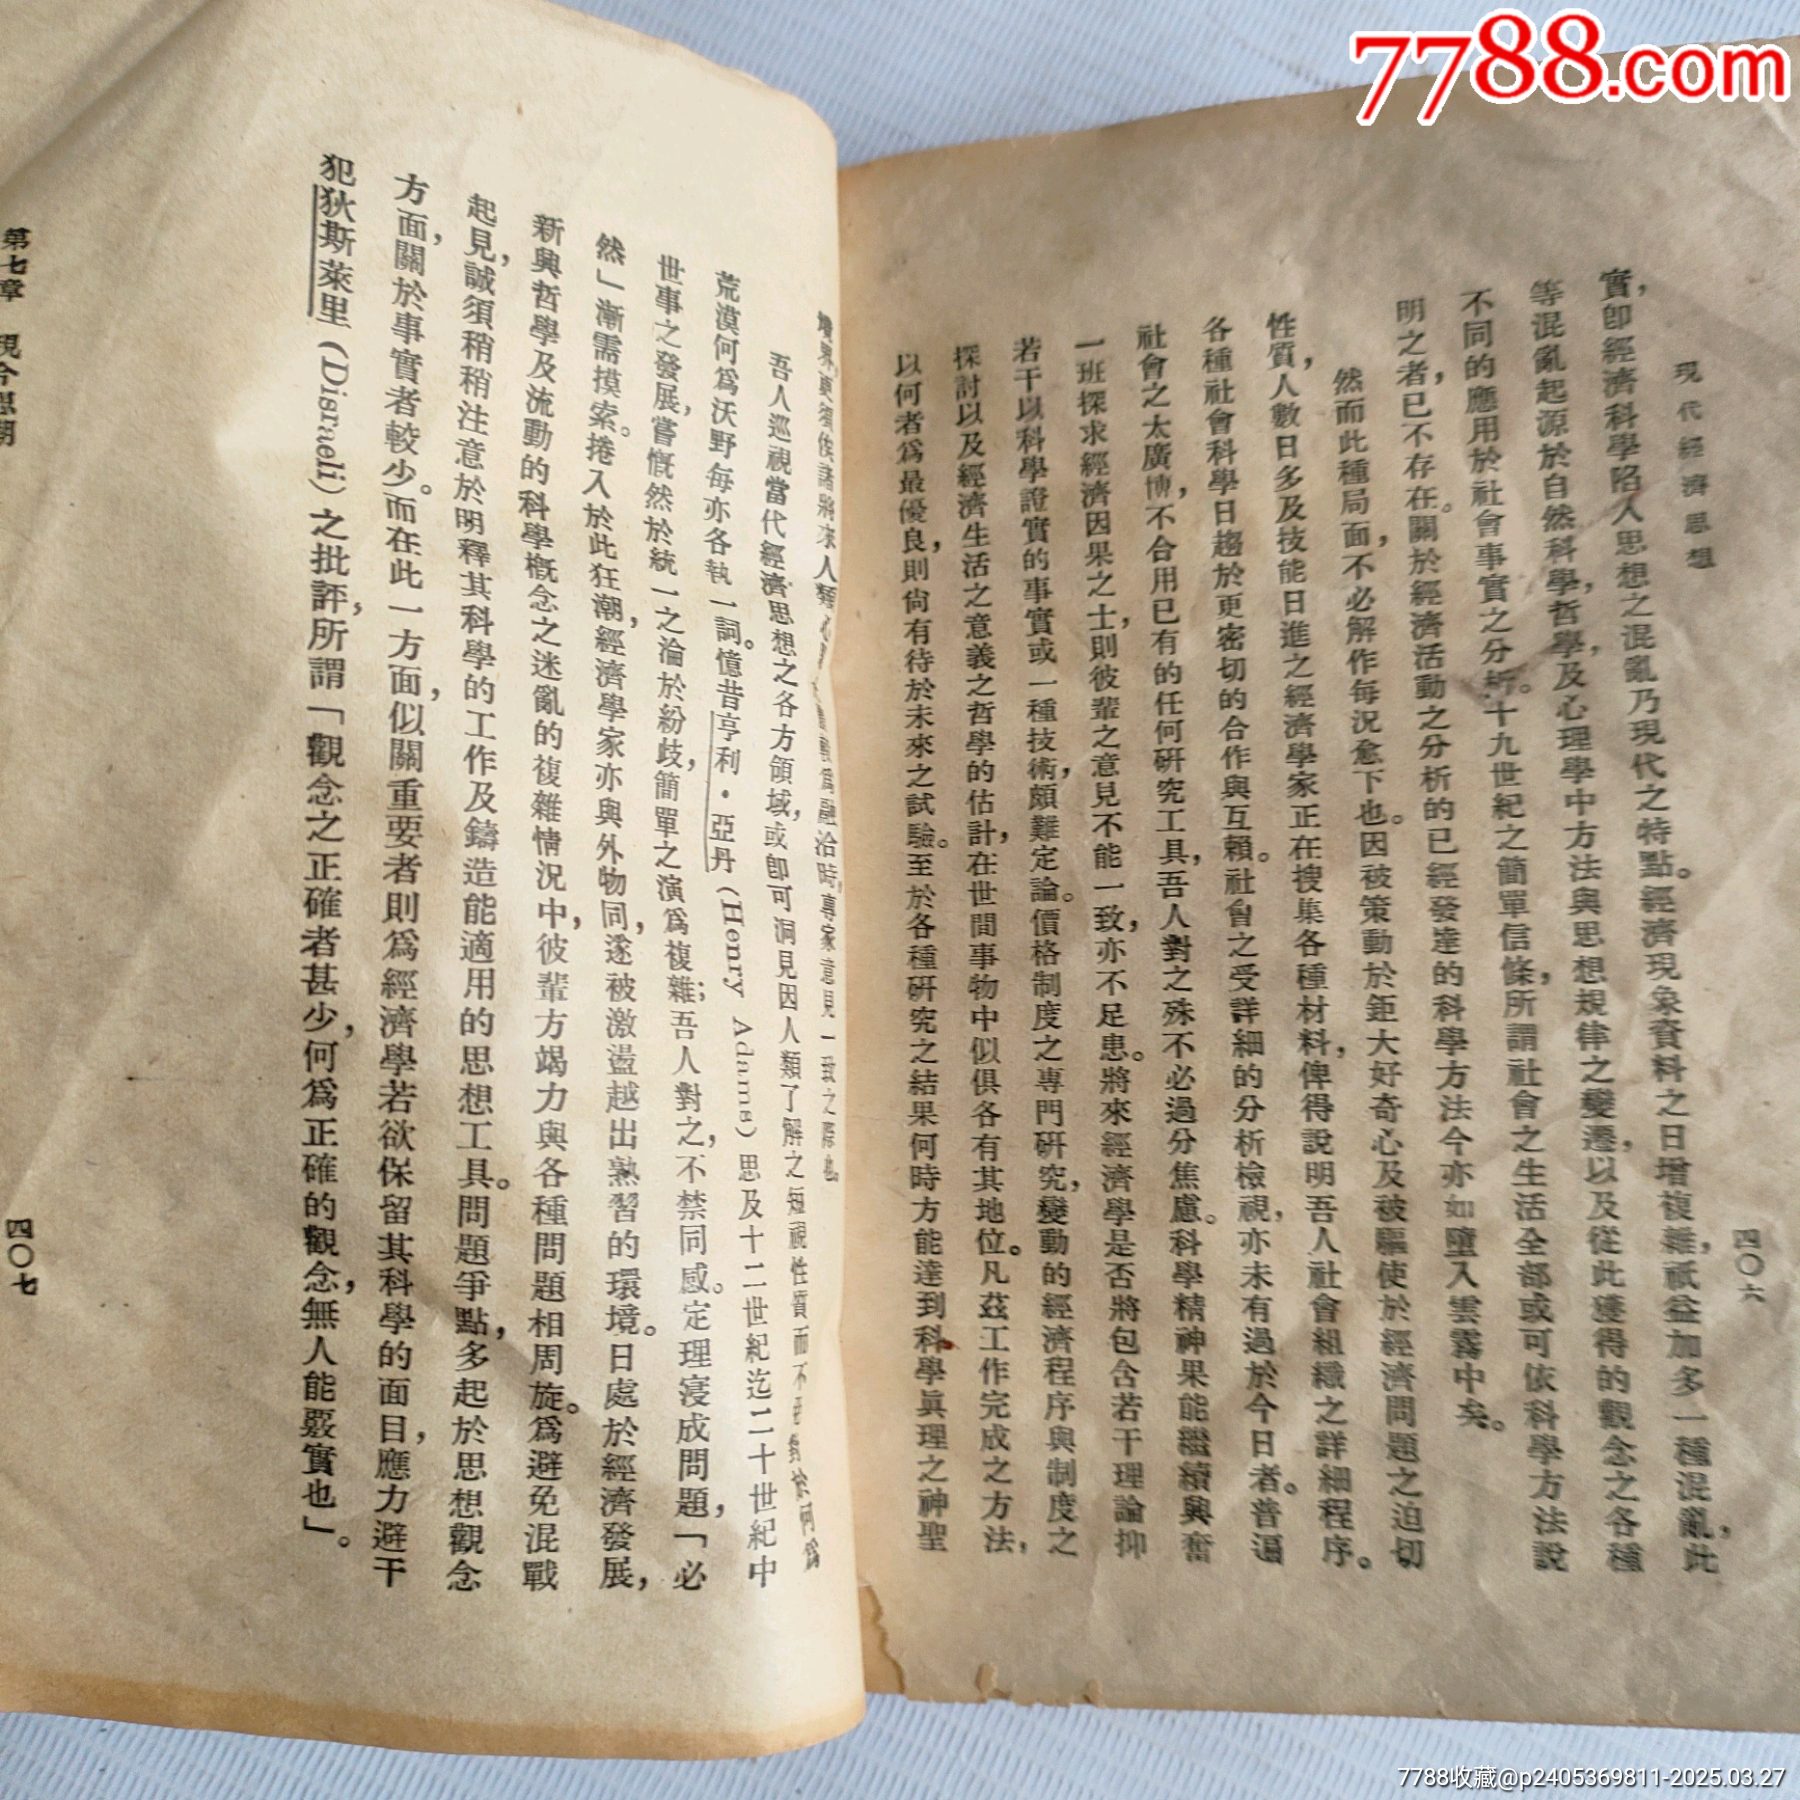 7788.com
現代經濟思想
四〇六
實,卽經濟科學陷入思想之混亂乃現代之特點。經濟現象資料之日增複雜,祇益加多一種混亂,此
等混亂起源於自然科學,哲學,及心理學中方法與思想規律之變遷,以及從此獲得的觀念之各種
不同的應用於社會事實之分析。十九世紀之簡單信條,所謂社會之生活全部或可依科學方法說
明之者,已不存在。關於經濟活動之分析的已經發達的科學方法今亦如墮入雲霧中矣。
然而此種局面,不必解作每況愈下也。因被策動於鉅大好奇心及被驅使於經濟問題之迫切
性質,人數日多及技能日進之經濟學家正在搜集各種材料,俾得說明吾人社會組織之詳細程序。
各種社會科學日趨於更密切的合作與互賴。社會之受詳細的分析檢視,亦未有過於今日者。普遍
社會之太廣博,不合用已有的任何研究工具,吾人對之殊不必過分焦慮。科學精神果能繼續興奮
一班探求經濟因果之士,則彼輩之意見不能一致,亦不足患。將來經濟學是否將包含若干理論抑
若干以科學證實的事實或一種技術,頗難定論。價格制度之專門研究,變動的經濟程序與制度之
探討以及經濟生活之意義之哲學的估計,在世間事物中似俱各有其地位。凡茲工作完成之方法,
以何者爲最優良,則尙有待於未來之試驗。至於各種研究之結果何時方能達到科學眞理之神聖
境界,更須俟諸將來人類 爲融洽時,專家意見一致之際也
吾人巡視當代經濟思想之各方領域,或卽可洞見因人類了解之短視性質而不 對於何爲
荒漠何爲沃野每亦各執一詞。憶昔亨利·亞丹(Henry Adams)思及十二世紀迄二十世紀中
世事之發展,嘗慨然於統一之淪於紛歧,簡單之演爲複雜;吾人對之,不禁同感。定理寖成問題,「必
然」漸需摸索。捲入於此狂潮,經濟學家亦與外物同,遂被激盪越出熟習的環境。日處於經濟發展,
新興哲學及流動的科學概念之迷亂的複雜情況中,彼輩方竭力與各種問題相周旋。爲避免混戰
起見,誠須稍稍注意於明釋其科學的工作及鑄造能適用的思想工具。問題爭點,多起於思想觀念
方面,關於事實者較少。而在此一方面,似關重要者則爲經濟學若欲保留其科學的面目,應力避干
犯狄斯萊里(Disraeli)之批評,所謂「觀念之正確者甚少,何爲正確的觀念,無人能覈實也」。
第七章 現今思潮
四〇七
7788收藏@p2405369811-2025.03.27